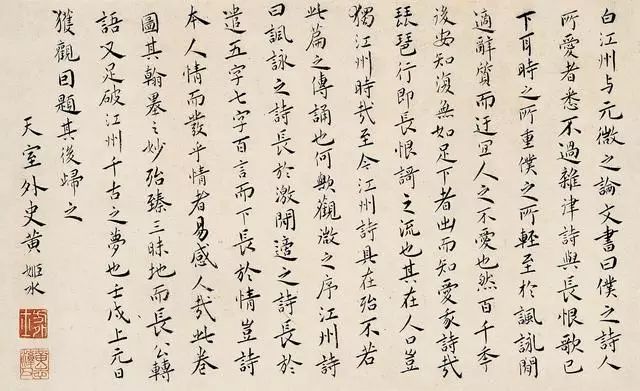 白江州与元微之論文書曰僕之詩人
所愛者悉不過雜律詩與長恨歌已
下耳時之所重僕之所輕至於諷詠閒
適辭質而迂宜人之不愛也然百千季
後安知復無如足下者出而知愛我詩哉
琵琶行即長恨謌之流也其在人口豈
獨江州時哉至今江州詩具在殆不若
此篇之傳誦也何歟觀微之序江州詩
曰諷詠之詩長於激閒適之詩長於
遣五字七字百言而下長於情豈詩
本人情而發乎情者易感人哉此卷
圖其翰墨之妙殆臻三昧地而長公轉
語又足破江州千古之夢也壬戌上元日
獲觀因題其後歸之
天室外史黄姬水